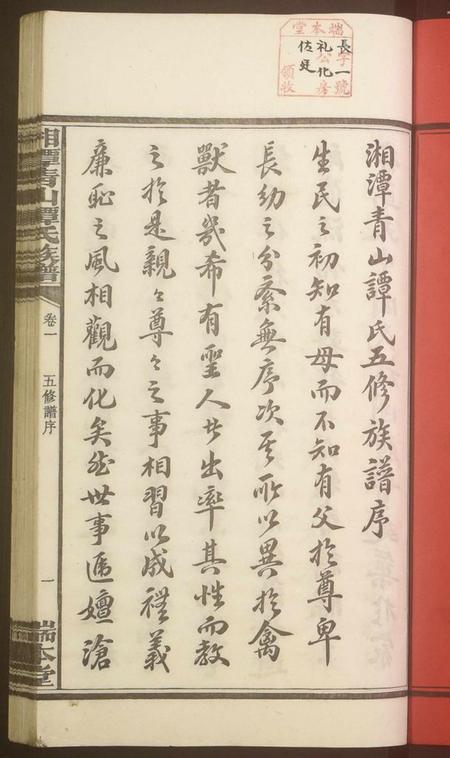 端本堂
長字一號
禮公化房
佐廷
領收
湘潭青山譚氏五修族譜序
生民之初知有母而不知有父於尊卑
長幼之分紊無序次其所以異於禽
獸者幾希有聖人者出率其性而教
之於是親〻尊〻之事相習以成禮義
廉恥之風相觀而化矣然世事遞嬗滄
湘潭青山譚氏族譜
卷一
五修譜序
一
端本堂